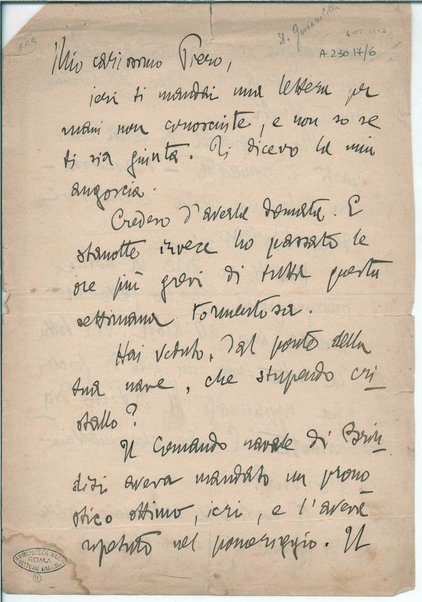 Mio carissimo Piero,
ieri ti mandai una lettera per
mani non conosciute, e non so se
ti sia giunta. Ti dicevo la mia
angoscia.
Credevo d'averla domata. E
stanotte invece ho passato le
ore più grevi di tutta questa
settimana tormentosa.
Hai veduto, dal ponte della
tua nave, che stupendo cri
stallo?
Il Comando navale di Brin
disi aveva mandato un prono
stico ottimo, ieri, e l'aveva
ripetuto nel pomeriggio. Il
A.230.17/6
BIBLIOTECA NAZ.
ROMA
VITTORIO EMANUELE